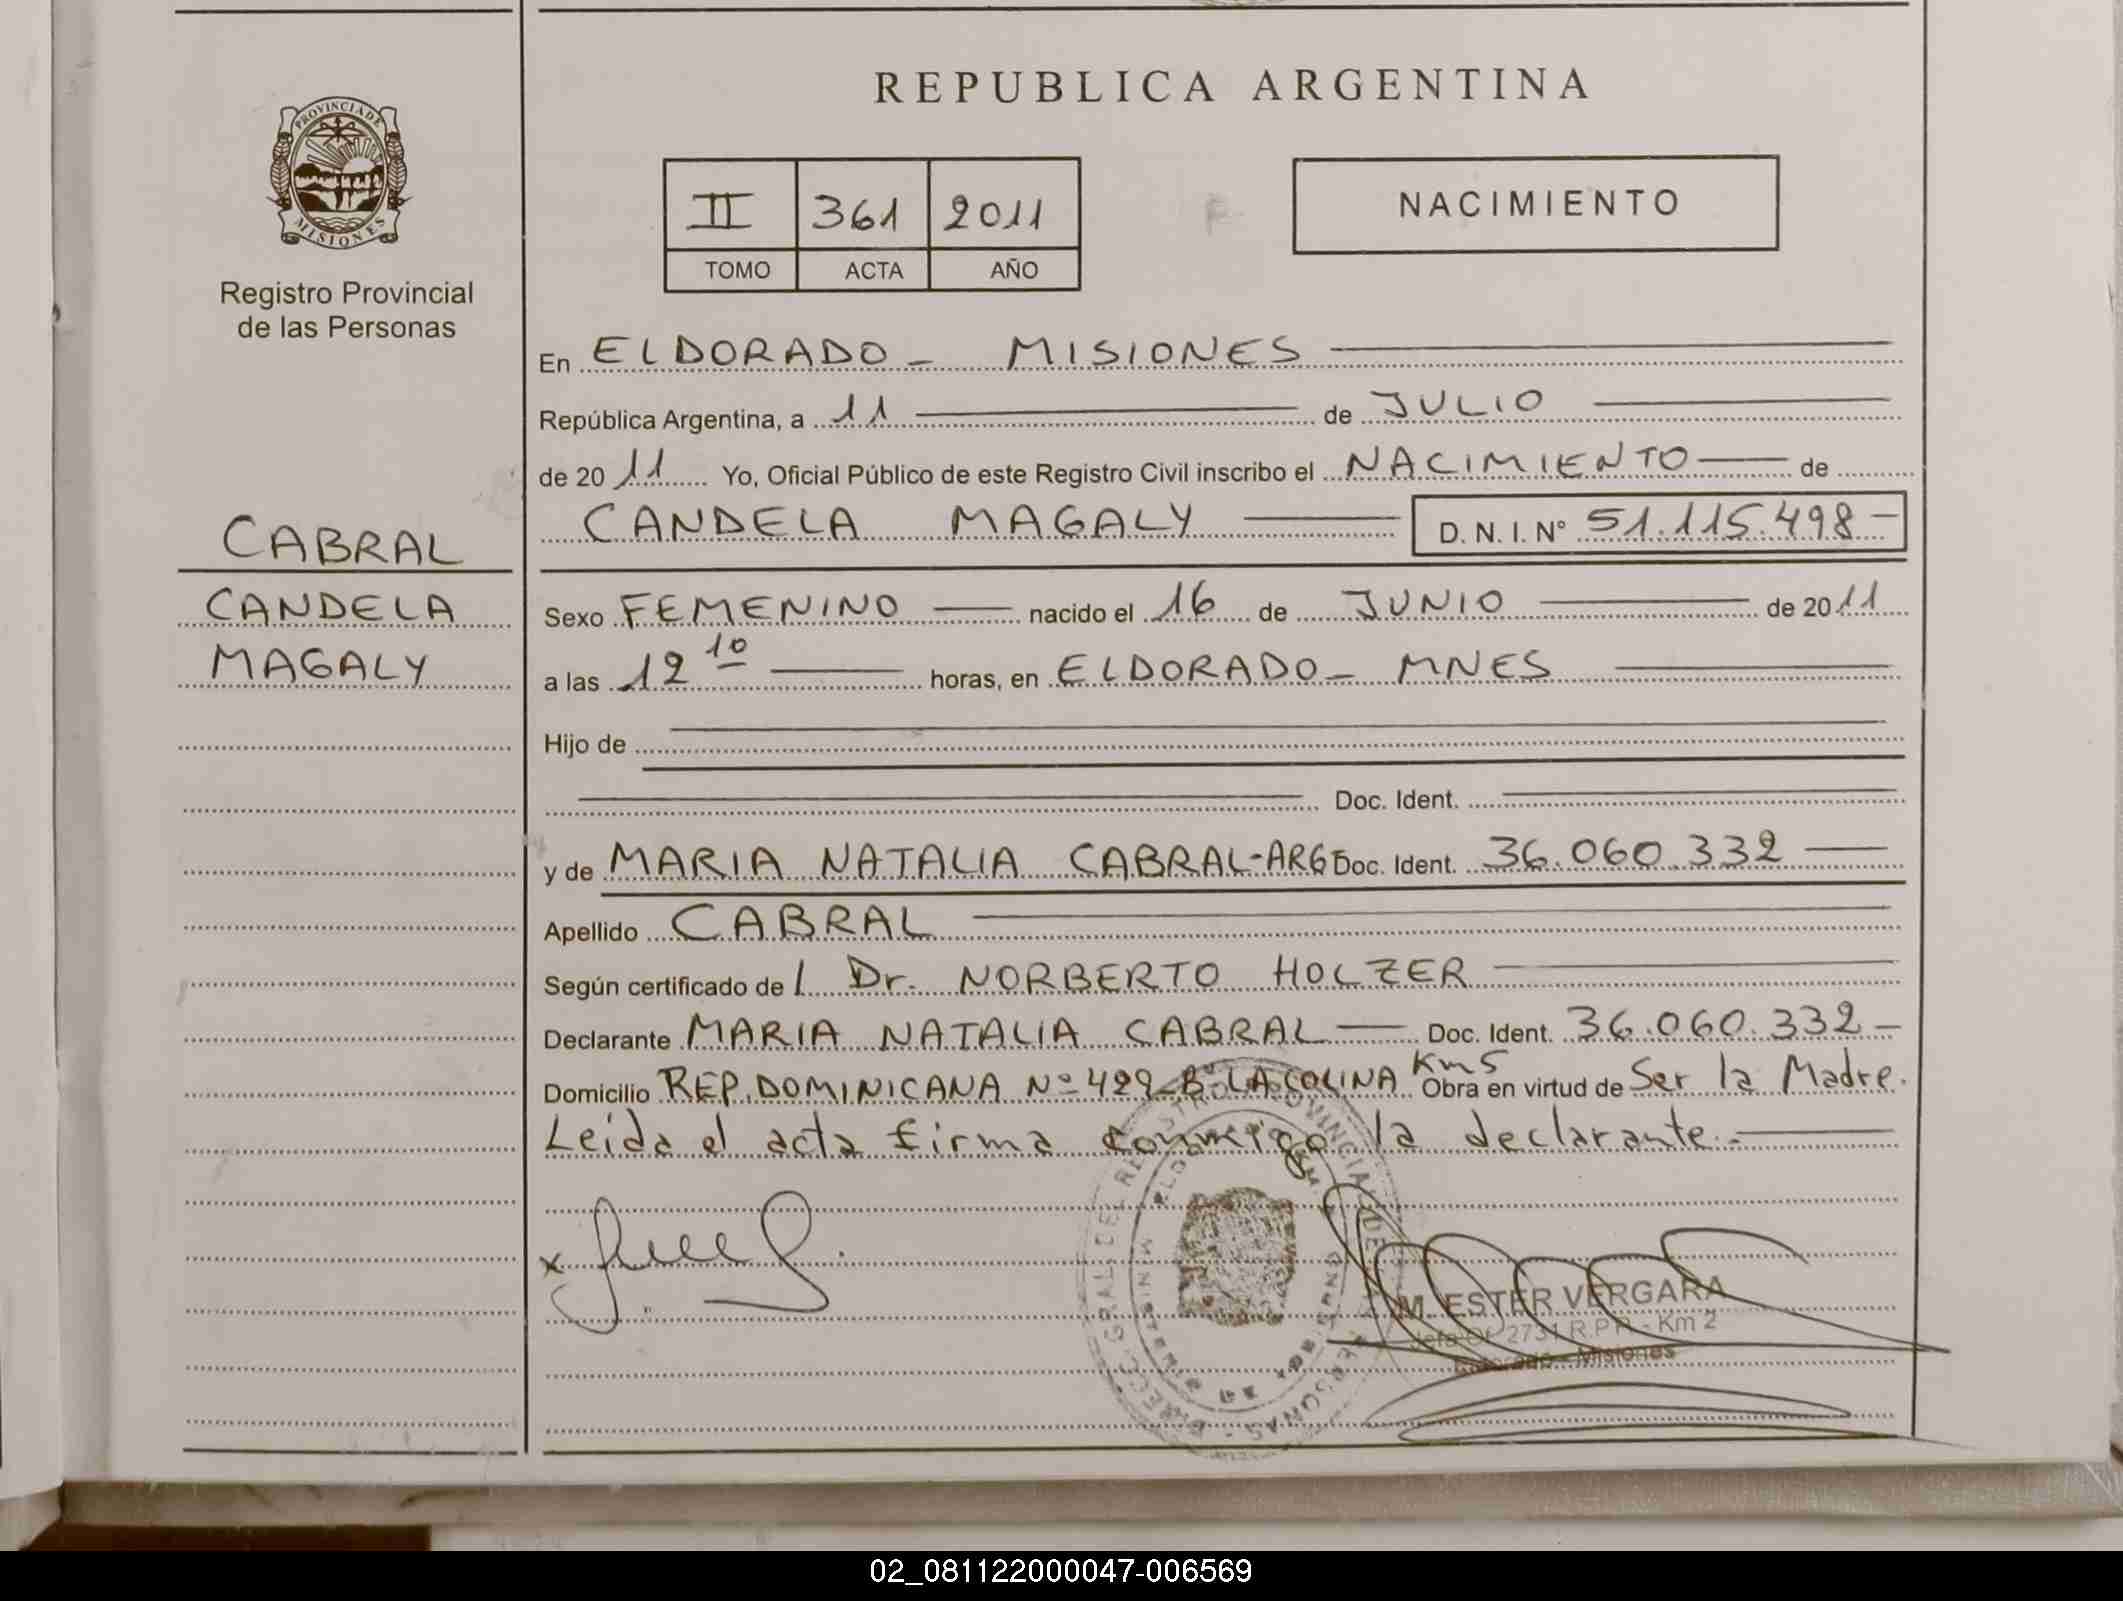 REPUBLICA ARGENTINA
PROVINCIA DE
MISIONES
Registro Provincial
de las Personas
II 361 2011
TOMO ACTA AÑO
NACIMIENTO
En ELDORADO - MISIONES
República Argentina, a 11 de JULIO
de 20 11 Yo, Oficial Público de este Registro Civil inscribo el NACIMIENTO de
CANDELA MAGALY D. N. I. N° 51.115.498-
CABRAL
CANDELA
MAGALY
Sexo FEMENINO nacido el 16 de JUNIO de 20 11
a las 12 10 horas, en ELDORADO - MNES
Hijo de
Doc. Ident.
y de MARIA NATALIA CABRAL-ARG Doc. Ident. 36.060.332
Apellido CABRAL
Según certificado de l Dr. NORBERTO HOLZER
Declarante MARIA NATALIA CABRAL Doc. Ident. 36.060.332-
Domicilio REP. DOMINICANA Nº 429-Bº LA COLINA Km5 Obra en virtud de Ser la Madre.
Leida el acta firma conmigo la declarante.-
x
M. ESTER VERGARA
Jefa Of. 2731 R.P.P. - Km 2
Eldorado - Misiones
02_081122000047-006569